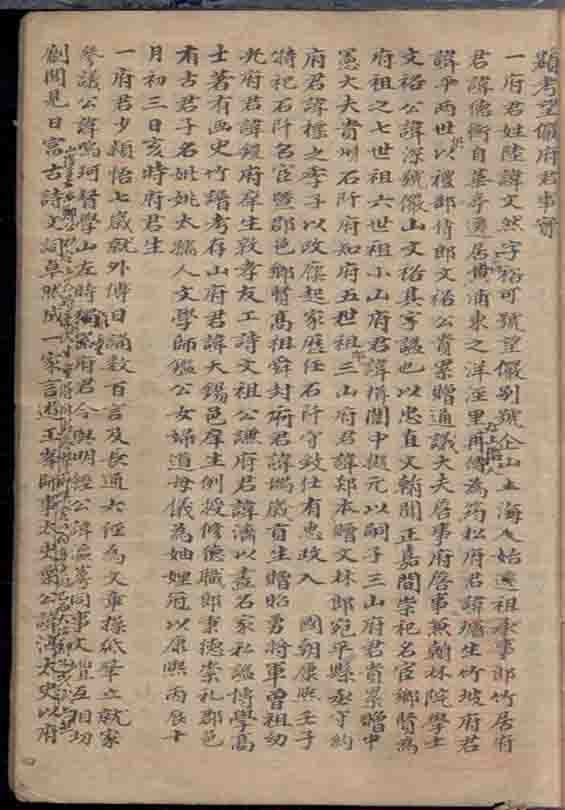 顯考望儼府君事實
一府君姓陸諱文然字裕可號望儼別號企山上海人始遷祖承事郎竹居府
君諱德衡自華亭遷居黃浦東之洋涇里再傳為筠松府君諱璿生竹坡府君
諱平两世以禮部侍郎文裕公貴累贈通議大夫詹事府詹事兼翰林院學士
文裕公諱深號儼山文裕其字謚也以忠直文翰聞正嘉間崇祀名宦鄉賢為
府祖之七世祖六世祖小山府君諱楫閩中擬元以嗣子三山府君貴累贈中
憲大夫貴州石阡府知府五世祖三山府君諱郯本贈文林郎宛平縣丞守約
府君諱標之季子以政廕起家歷任石阡守致仕有惠政入 國朝康熙壬子
特祀石阡名宦暨郡邑鄉賢高祖舜封府君諱歲貢生贈昭勇將軍曾祖幼
兆府君諱鑨府庠生敦孝友工詩文祖公謙府君諱濟以畫名家私謚博學高
士著有画史竹譜考存山府君諱天錫邑庠生例授修德職郎秉德崇礼郡邑
有古君子名妣姚太孺人文學師鑑公女婦道母儀為妯娌冠以康熙丙辰十
月初三日亥時府君生
一府君少穎悟七歲就外傅日誦數百言及長通六經為文章操紙筆立就家
參議公諱鳴珂督學山左時府君令與明經公諱瀛同事文互相切
劘聞見日富古詩文詞卓然成一家言遊王峯師事太史公諱太史以府